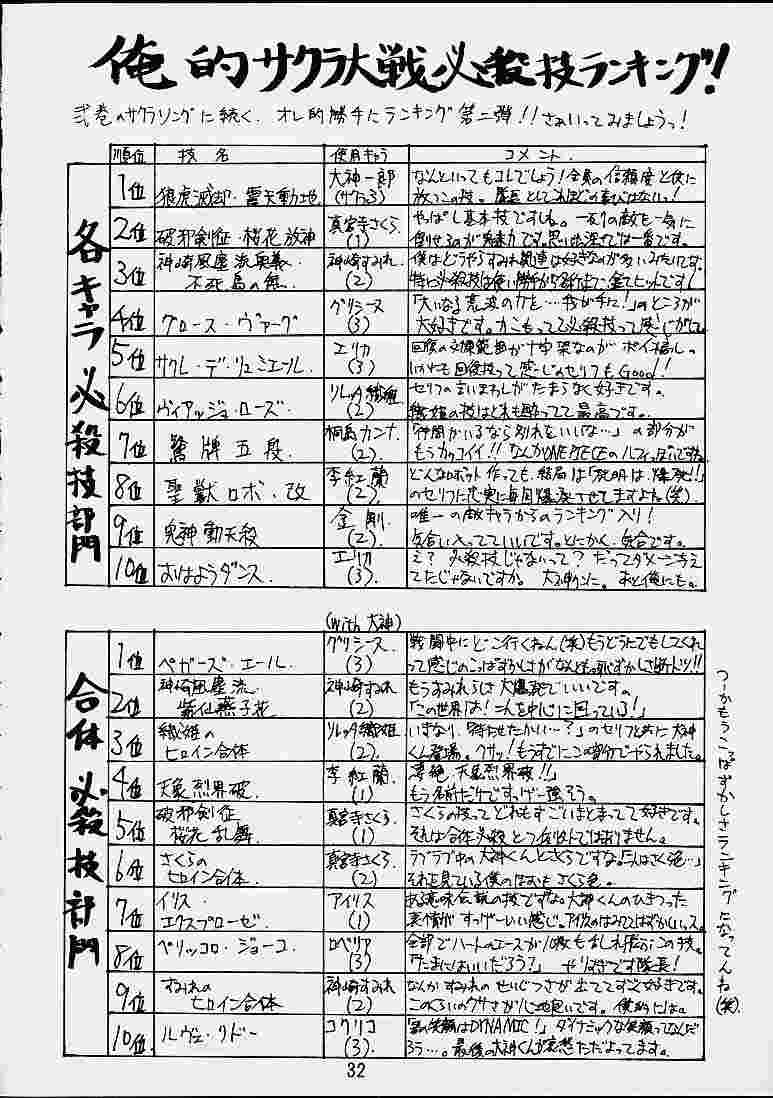 俺的サクラ大戦必殺技ランキング!
弐巻のサクラソングに続く、オレ的勝手にランキング第二弾!!さぁいってみましょうっ!
各キャラ必殺技部門
順位 技名 使用キャラ コメント
1位 狼虎滅却・震天動地 大神一郎 なんといってもコレでしょう!全員の信頼度と供に
放つこの技。隊長としてこれほどの喜びはないっ!
2位 破邪剣征・桜花放神 真宮寺さくら (1) やっぱし基本技ですしね。一列の敵も一気に
倒せるのが魅力です。思い出深さでは一番です。
3位 神崎風塵流奥義・不死鳥の舞 神崎すみれ (2) 僕はどうやらすみれ関連は好きなのが多いみたいでな。
特に必殺技は使い勝手から名前まで全てヒットです!
4位 グロース・ヴァーグ グリシーヌ (3) 「大いなる荒波の力を…我が手に!」のところが
大好きです。力こもってて必殺技って感じがして。
5位 サクレ・デ・リュミエール エリカ (3) 回復の効果範囲が十字架なのがポイント高しっ。
いかにも回復技って感じのセリフもGood!
6位 ヴィアッジョ・ローズ ソレッタ織姫 (2) セリフの言いまわしがたまらなく好きです。
織姫の技はどれも酔ってて最高です。
7位 鷲牌五段 桐島カンナ (2) 「仲間がいるなら別れをいいな…」の部分が
もうカッコイイ!!なんかONE PIECEのルフィっぽいですね。
8位 聖獣ロボ・改 李紅蘭 (2) どんなロボット作っても、結局は「発明は爆発!!」
のセリフに忠実に毎回爆発させてますよね(笑)
9位 鬼神動天殺 金剛 (2) 唯一の敵キャラからのランキング入り!
気合い入ってていいです。とにかく、気合です。
10位 おはようダンス エリカ (3) え?必殺技じゃないって?だってダメージ与え
てたじゃないですか。大神くんに。あと俺にも。
合体必殺技部門
(with 大神)
1位 ペガーズ・エール グリシーヌ (3) 戦闘中にどこ行くねん(笑)もうどうにでもしてくれ
って感じのこっぱずかしさがなんとも。恥ずかしさ断トツ!!
2位 神崎風塵流 紫仙燕子花 神崎すみれ (2) もうすみれらしさ大爆発でいいです。
「この世界は!二人を中心に回っている!」
3位 織姫のヒロイン合体 ソレッタ織姫 (2) いきなり、「待たせたかい…?」のセリフと共に大神
くん登場。クサッ!もうすでにこの部分でやられました。
4位 天象烈界破 李紅蘭 (1) 「凄絶 天象烈界破!!」
もう名前だけですっげー強そう。
5位 破邪剣征 桜花乱舞 真宮寺さくら (1) さくらの技ってどれもすごいまとまってて好きです。
それは合体必殺とて例外ではありません。
6位 さくらのヒロイン合体 真宮寺さくら (2) ラブラブ中の大神くんとさくらですな。「二人はさくら色…」
それを見ている僕のほおもさくら色。
7位 イリス・エクスプローゼ アイリス (1) ある意味伝説の技ですな。大神くんのひきつった
表情がすっげーいい感じ。
8位 ペリッコロ・ジョーコ ロベリア (3) 全部でハートのエースが10枚もまじれ飛ぶこの技。
「たまにはいいだろう?」やりすぎです隊長!
9位 すみれのヒロイン合体 神崎すみれ (2) なんかすみれのせいじつさが出ててすごく好きです。
このくらいのクサさが心地良いです。僕的には。
10位 ルヴェ・リドー コクリコ (3) 「君の笑顔はDYNAMIC!」ダイナミックな笑顔ってなんだ
ろう…。最後の大神くんが哀愁ただよってます。
つーかもうこっぱずかしさランキングになってんね(笑)
32